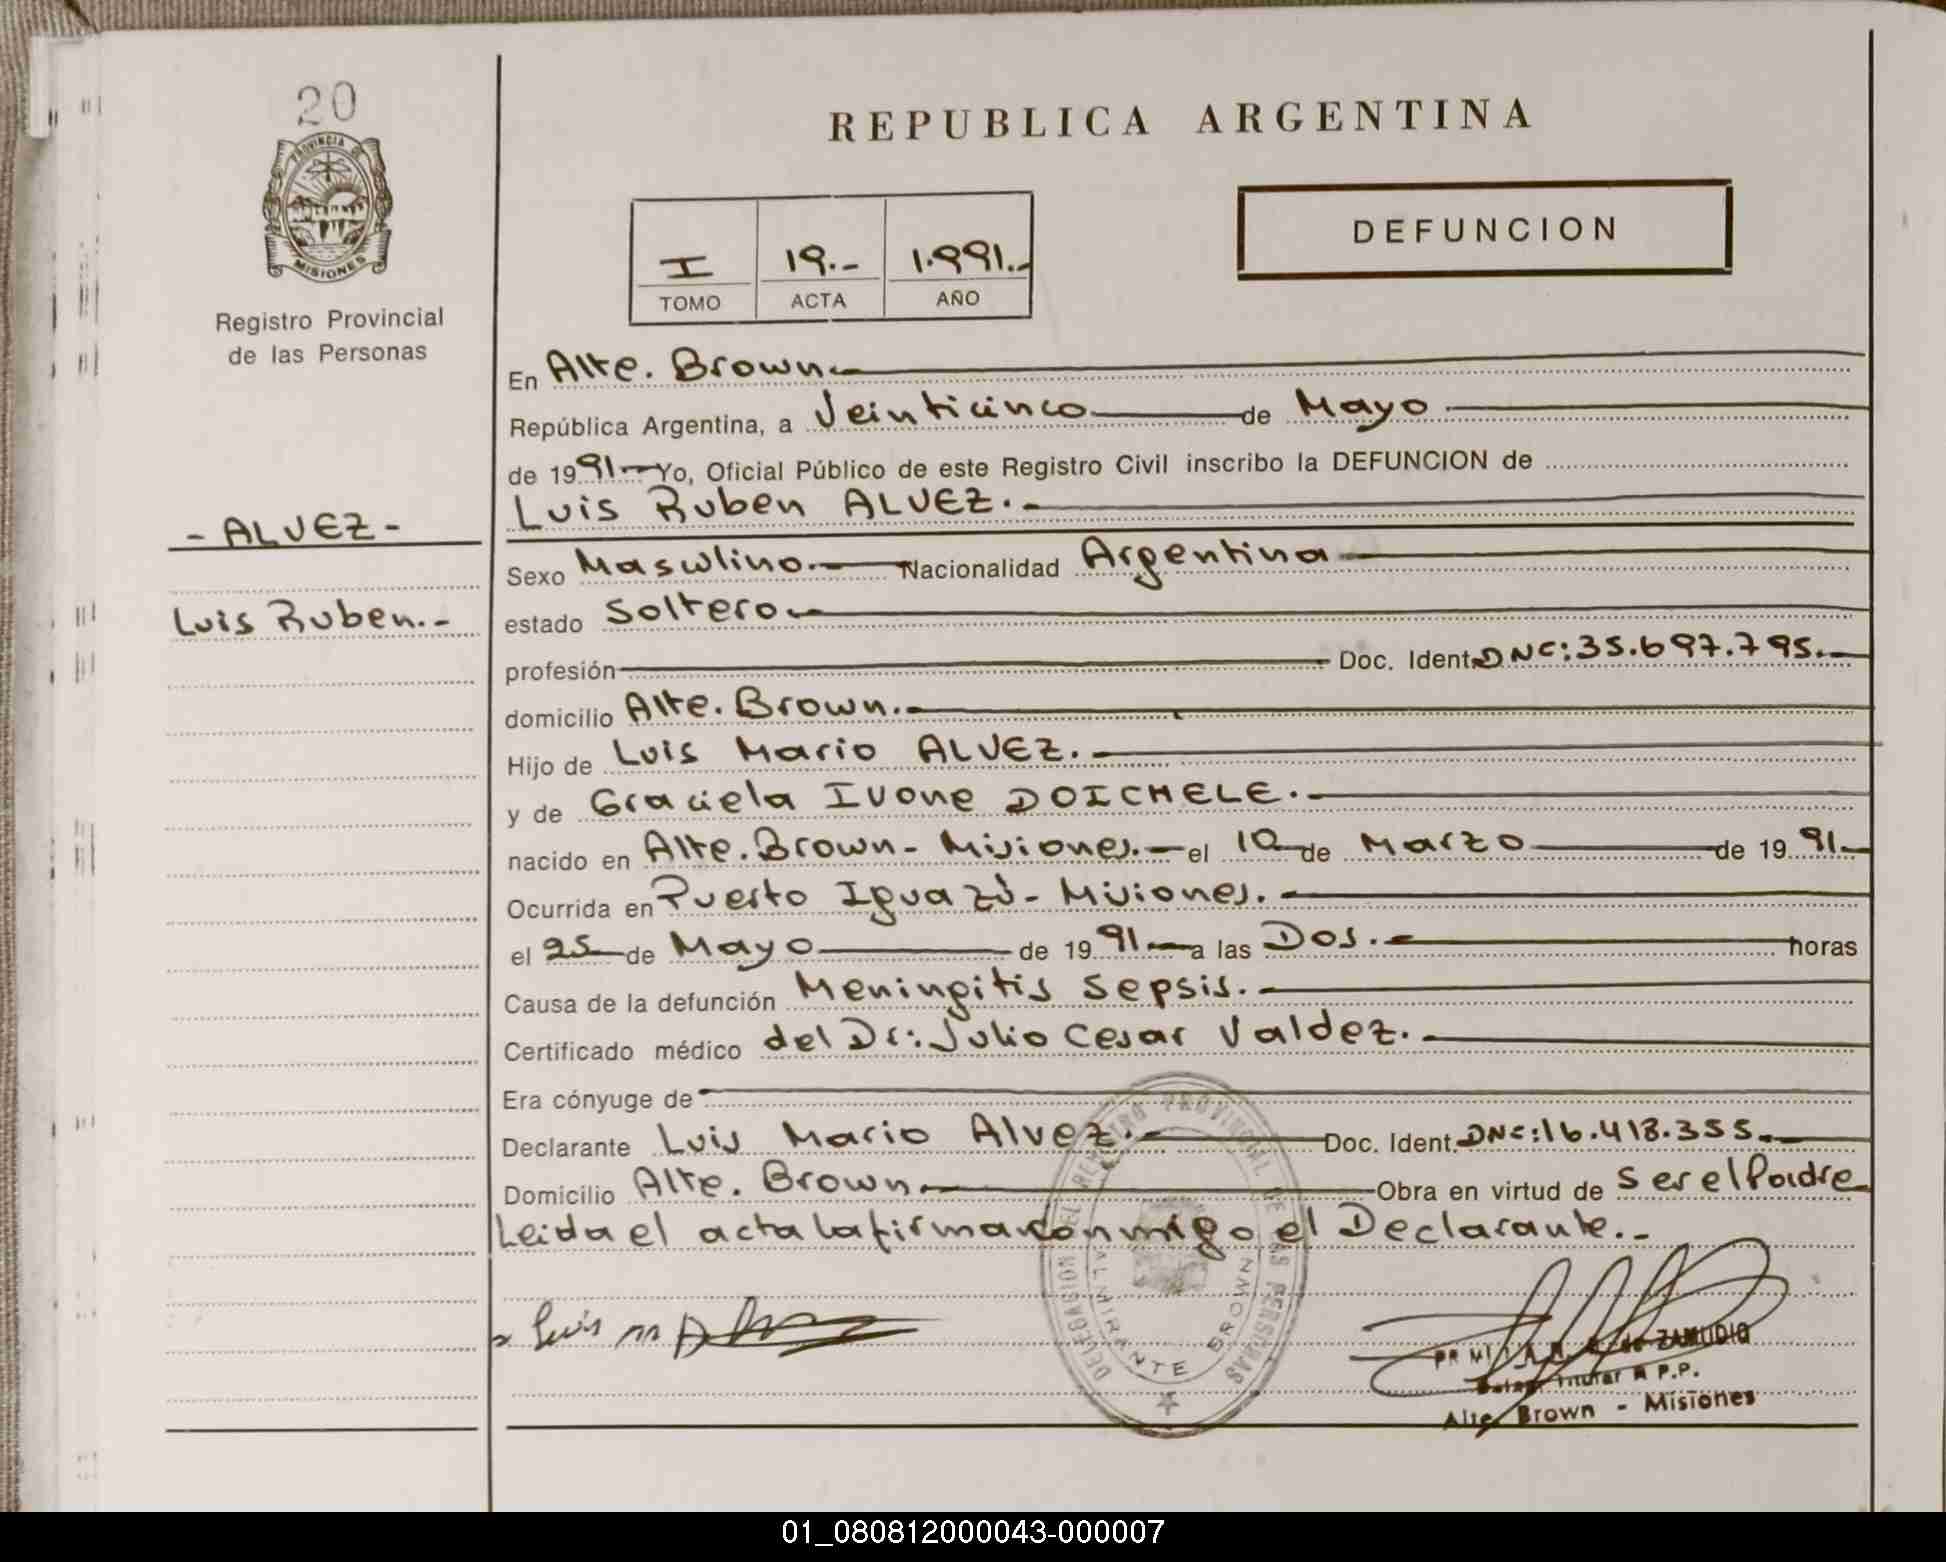 20
PROVINCIA DE
MISIONES
Registro Provincial
de las Personas
- ALVEZ -
Luis Ruben.-
REPUBLICA ARGENTINA
I 19.- 1.991.-
TOMO ACTA AÑO
DEFUNCION
En Alte. Brown.
República Argentina, a Veinticinco de Mayo
de 1991.- Yo, Oficial Público de este Registro Civil inscribo la DEFUNCION de
Luis Ruben ALVEZ.-
Sexo Masculino.- Nacionalidad Argentina
estado Soltero.-
profesión Doc. Ident DNC:35.697.795.-
domicilio Alte. Brown.-
Hijo de Luis Mario ALVEZ.-
y de Graciela Ivone DOICHELE.-
nacido en Alte. Brown- Misiones.- el 10 de Marzo de 1991.-
Ocurrida en Puerto Iguazú- Misiones.-
el 25 de Mayo de 1991.- a las Dos.- horas
Causa de la defunción Meningitis Sepsis.-
Certificado médico del Dr: Julio Cesar Valdez.-
Era cónyuge de
Declarante Luis Mario Alvez.- Doc. Ident. DNC:16.418.355.-
Domicilio Alte. Brown.- Obra en virtud de Ser el Padre
Leida el acta la firma conmigo el Declarante.-
DELEGACION DEL REGISTRO PROVINCIAL DE LAS PERSONAS
ALMIRANTE BROWN
Luis M
de ZAMUDIO
Titular R.P.P.
Alte. Brown - Misiones
01_080812000043-000007